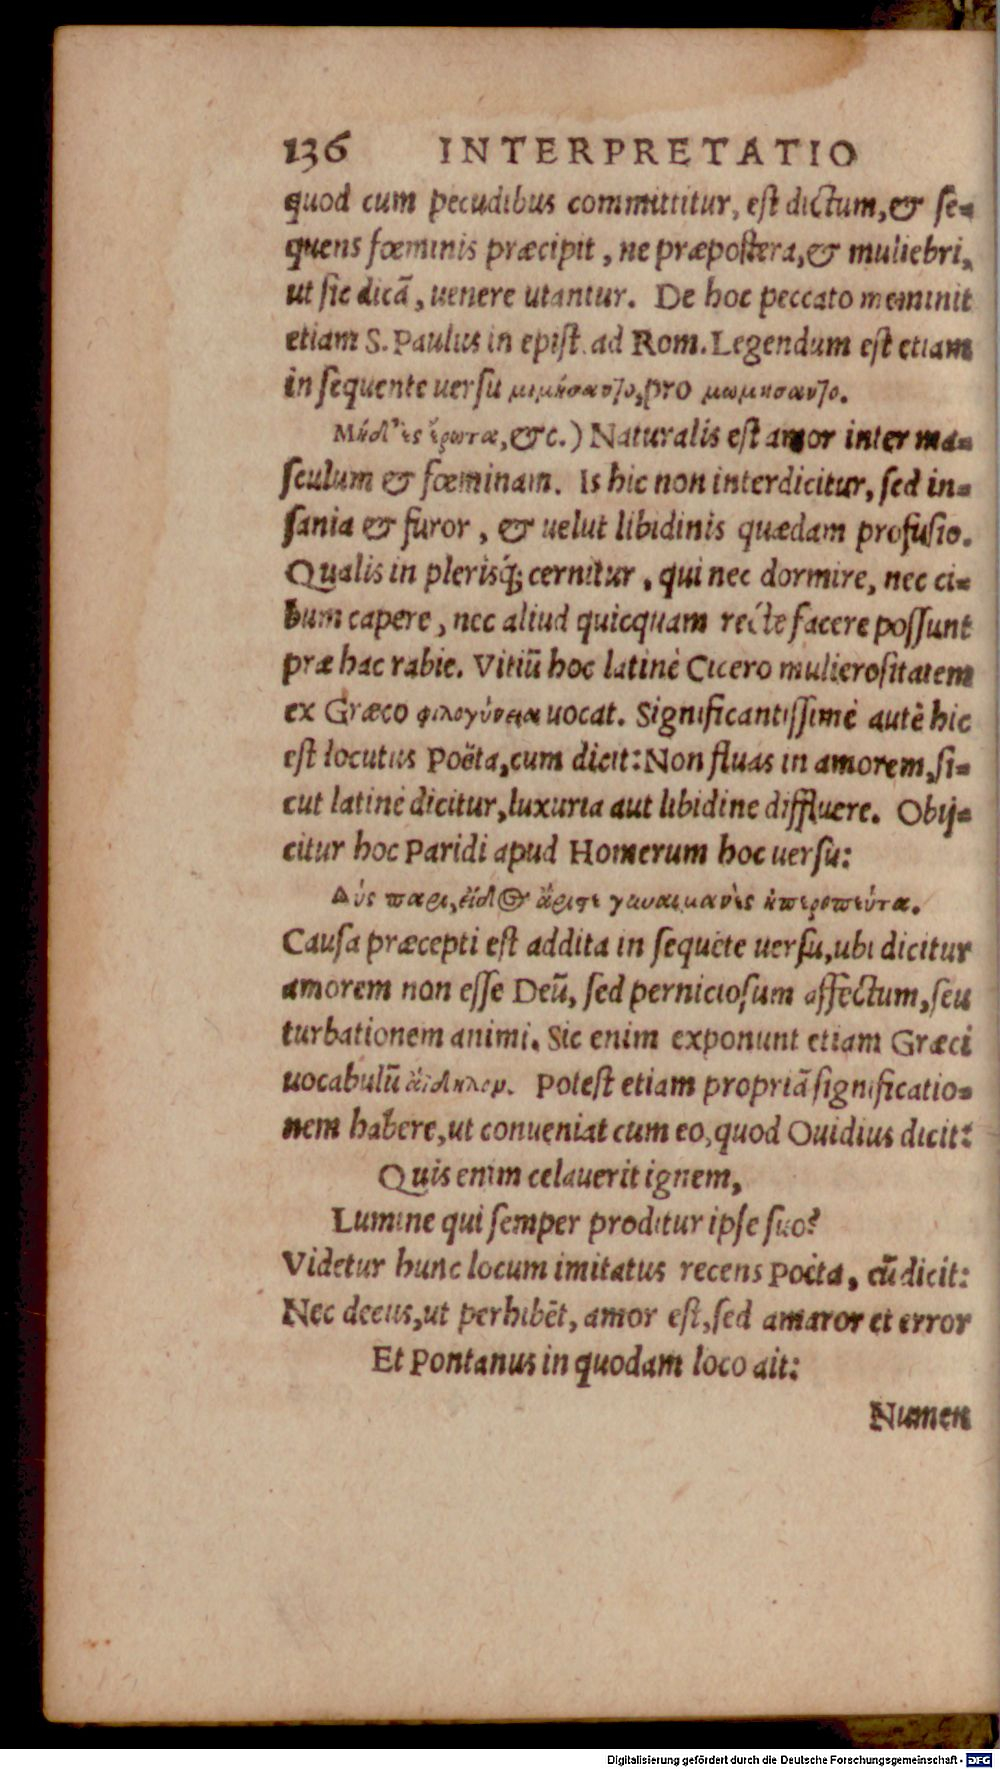 136 INTERPRETATIO
quod cum pecudibus committitur, est dictum, & se-
quens fœminis præcipit, ne præpostera, & muliebri,
ut sic dicã, uenere utantur. De hoc peccato meminit
etiam S. Paulus in epist. ad Rom. Legendum est etiam
in sequente uersu μιμήσαντο, pro μωμησαντο.
Μήδ' ἐς ἔρωτα, &c.) Naturalis est amor inter ma-
sculum & fœminam. Is hic non interdicitur, sed in-
sania & furor, & uelut libidinis quædam profusio.
Qualis in plerisq́; cernitur, qui nec dormire, nec ci-
bum capere, nec aliud quicquam recte facere possunt
præ hac rabie. Vitiũ hoc latinè Cicero mulierositatem
ex Græco φιλογύνεια uocat. Significantissimè autẽ hic
est locutus Poëta, cum dicit: Non fluas in amorem, si-
cut latinè dicitur, luxuria aut libidine diffluere. Obij-
citur hoc Paridi apud Homerum hoc uersu:
Δύς παρι, εἶδος ἄριστε γυναιμανὲς ἠπεροπευτα.
Causa præcepti est addita in sequẽte uersu, ubi dicitur
amorem non esse Deũ, sed perniciosum affectum, seu
turbationem animi. Sic enim exponunt etiam Græci
uocabulũ ἀΐδηλον. Potest etiam propriã significatio-
nem habere, ut conueniat cum eo, quod Ouidius dicit:
Quis enim celauerit ignem,
Lumine qui semper proditur ipse suo?
Videtur hunc locum imitatus recens Poëta, cũ dicit:
Nec deus, ut perhibẽt, amor est, sed amaror et error
Et Pontanus in quodam loco ait:
Numen
Digitalisierung gefördert durch die Deutsche Forschungsgemeinschaft - DFG